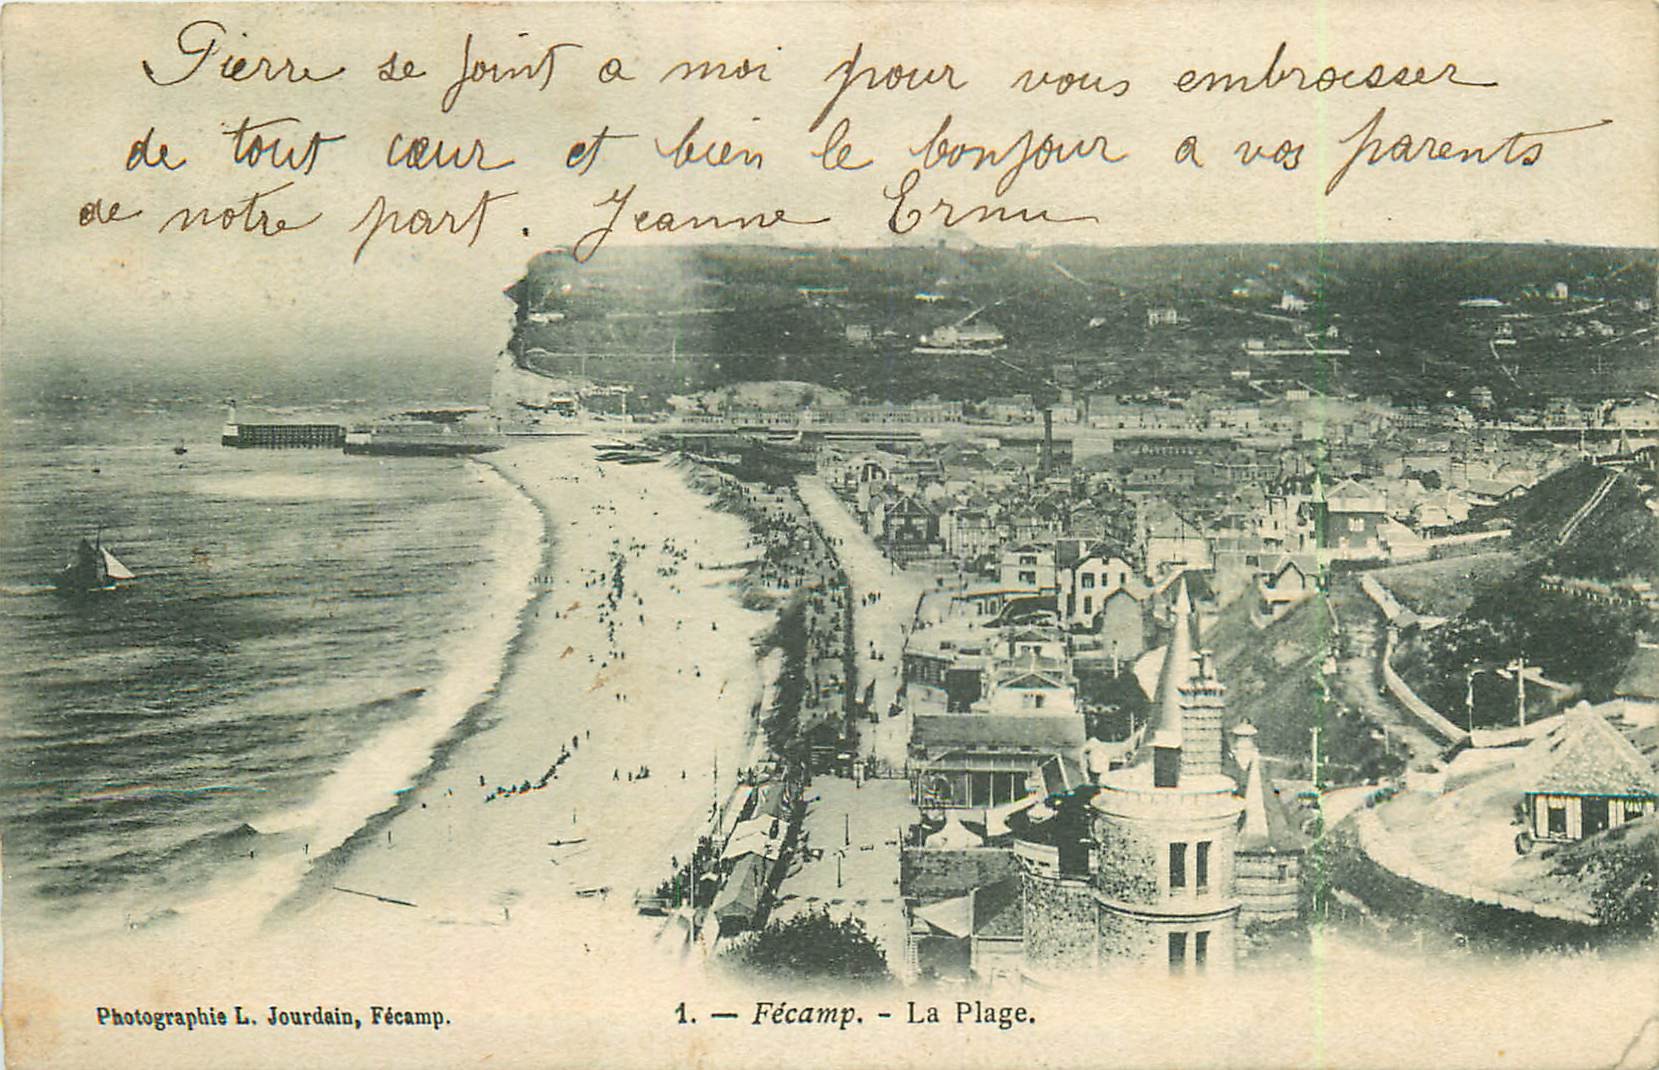 Pierre se joint a moi pour vous embrasser
de tout cœur et bien le bonjour a vos parents
de notre part. Jeanne
Photographie L. Jourdain, Fécamp.
1. — Fécamp. - La Plage.